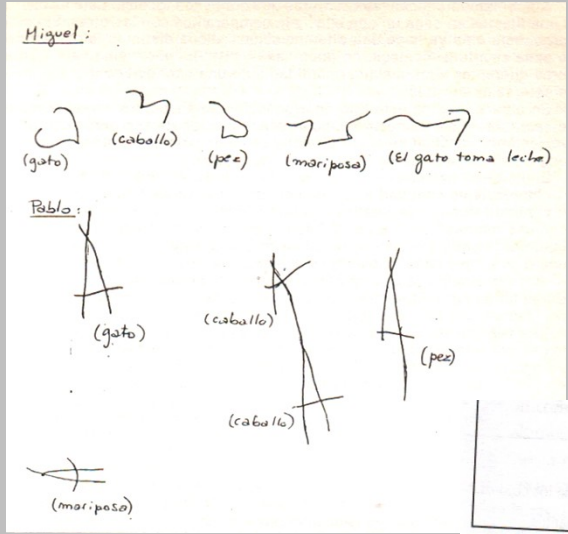 Miguel:
(gato) (caballo) (pez) (mariposa) (El gato toma leche)
Pablo:
(gato) (caballo) (pez)
(caballo)
(mariposa)